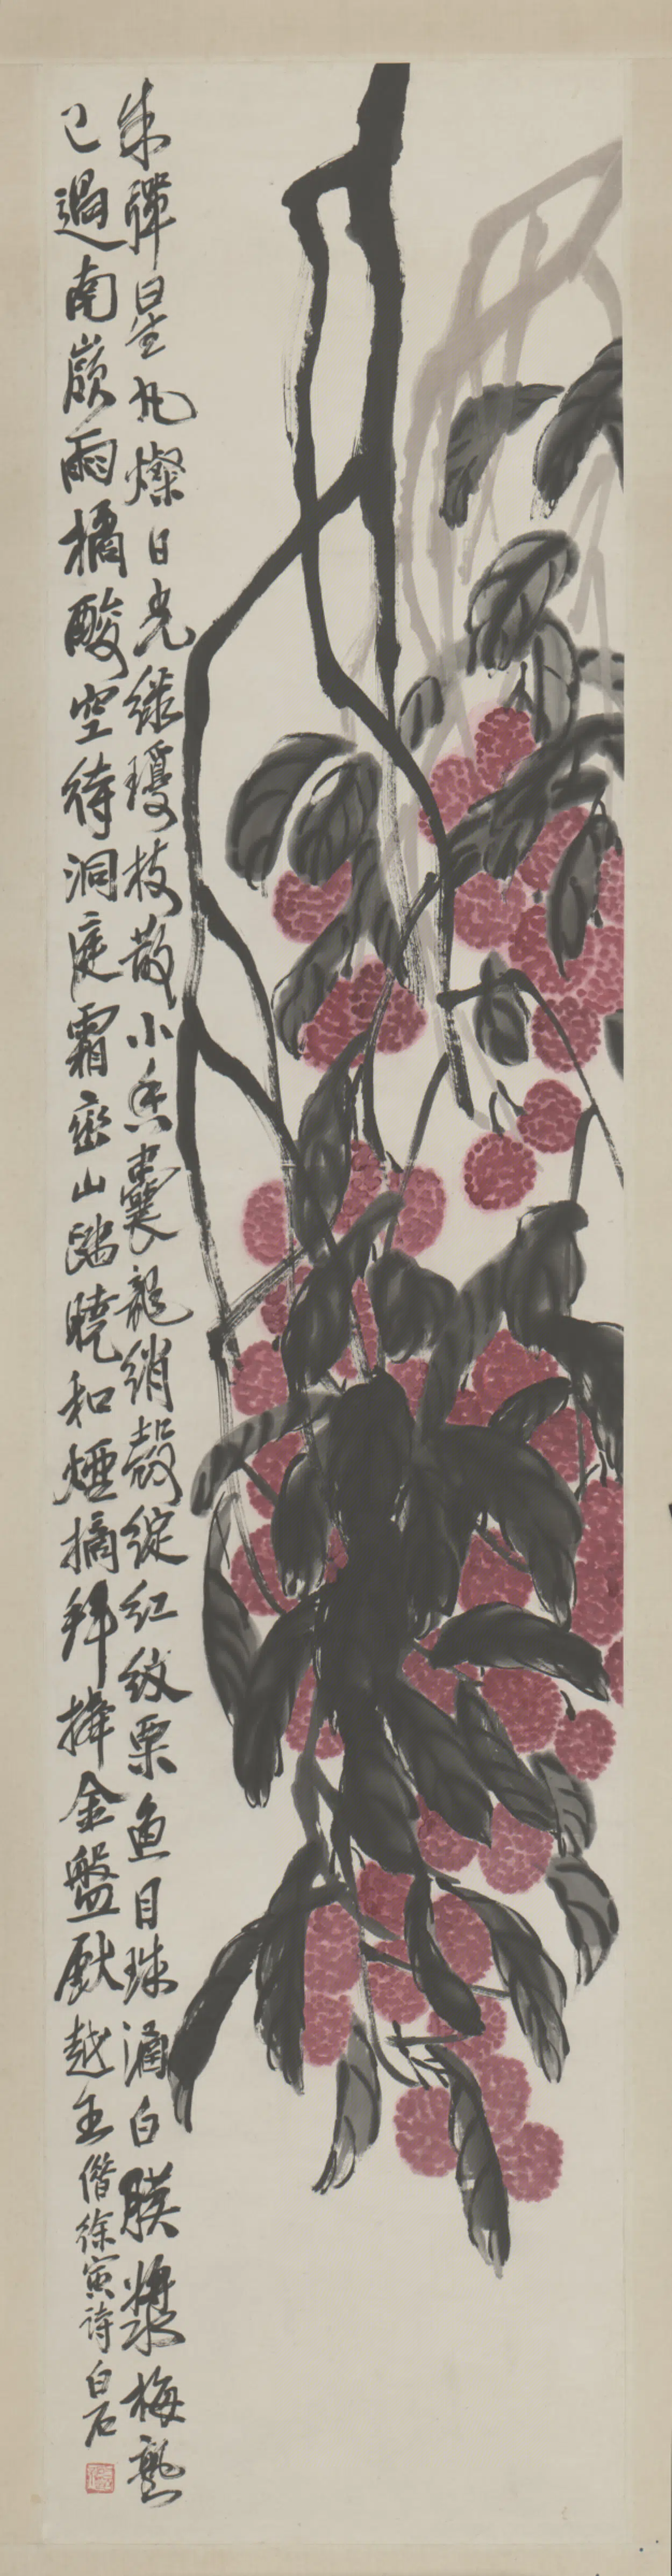 朱彈星丸燦日光綠瓊枝散小香囊龍綃殼綻紅紋栗魚目珠涵白膜漿梅熟
已過南嶺雨橘酸空待洞庭霜蛮山踏曉和煙摘拜捧金盤獻越王借徐寅詩白石